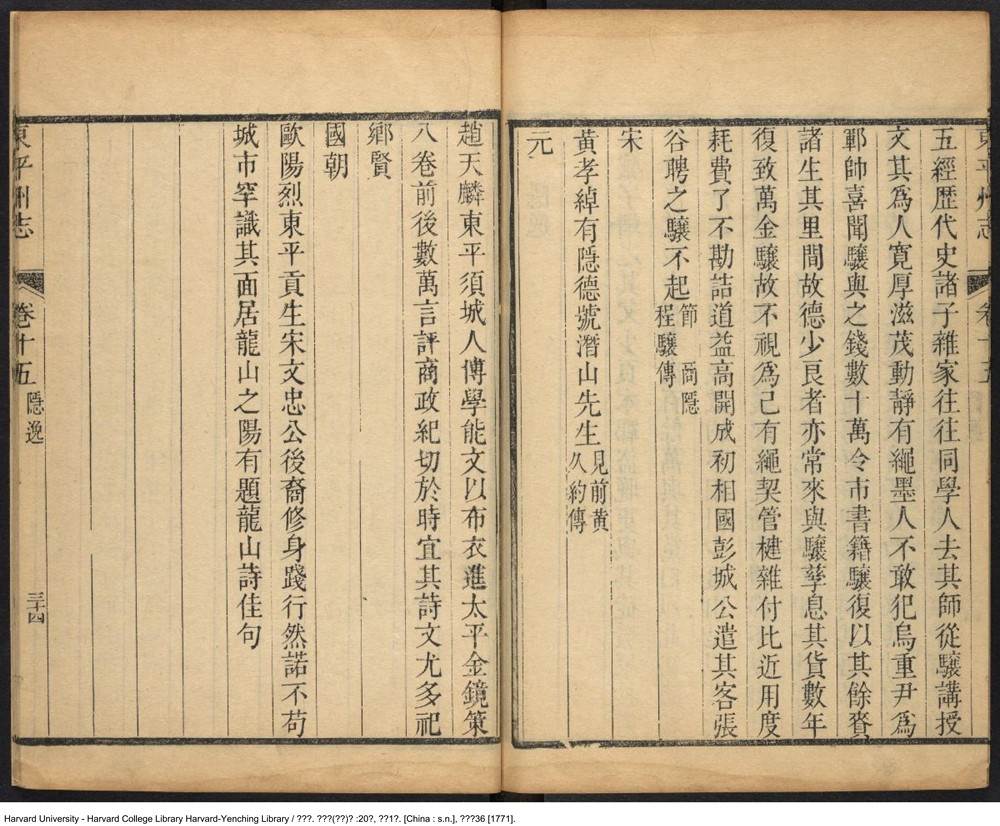 東平州志 卷十五
五經歷代史諸子雜家往往同學人去其師從驤講授
文其爲人寬厚滋茂動靜有繩墨人不敢犯烏重尹爲
鄆帥喜聞驤與之錢數十萬令市書籍驤復以其餘賚
諸生其里閭故德少良者亦常來與驤孳息其貨數年
復致萬金驤故不視爲己有繩契管楗雜付比近用度
耗費了不勘詰道益高開成初相國彭城公遣其客張
谷聘之驤不起 節商隱程驤傳
宋
黃孝綽有隱德號潛山先生 見前黃久約傳
元
趙天麟東平須城人博學能文以布衣進太平金鏡策
八卷前後數萬言評商政紀切於時宜其詩文尤多祀
鄉賢
國朝
歐陽烈東平貢生宋文忠公後裔修身踐行然諾不苟
城市罕識其面居龍山之陽有題龍山詩佳句
東平州志 卷十五 隱逸 三十四
Harvard University - Harvard College Library Harvard-Yenching Library / ???. ???(??)? :20?, ??1?. [China : s.n.], ???36 [1771].